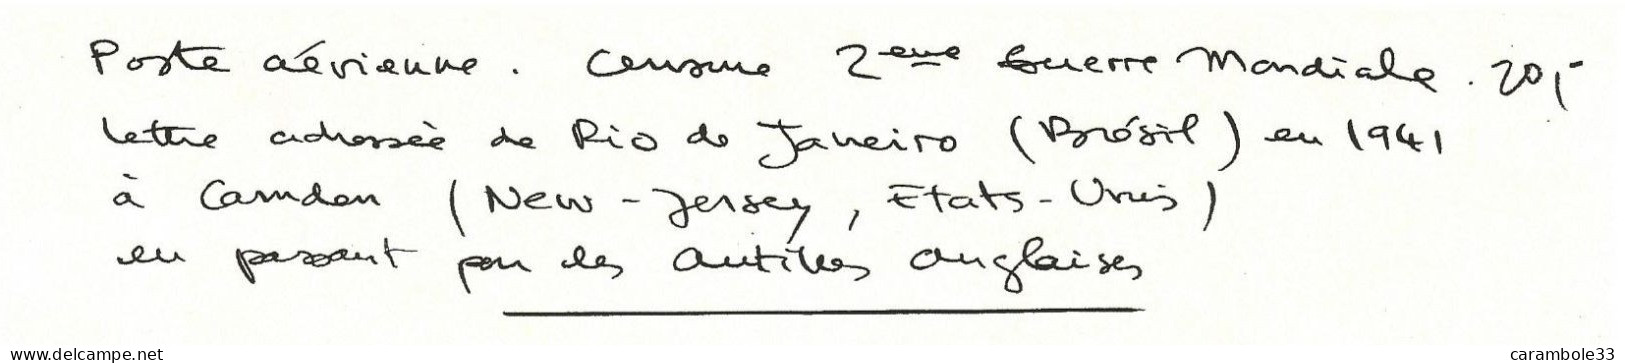 Poste aérienne. Censure 2eme Guerre Mondiale. 20,-
lettre adressée de Rio de Janeiro (Brésil) en 1941
à Camden (New-Jersey, Etats-Unis)
en passant par les Antilles anglaises
www.delcampe.net
carambole33